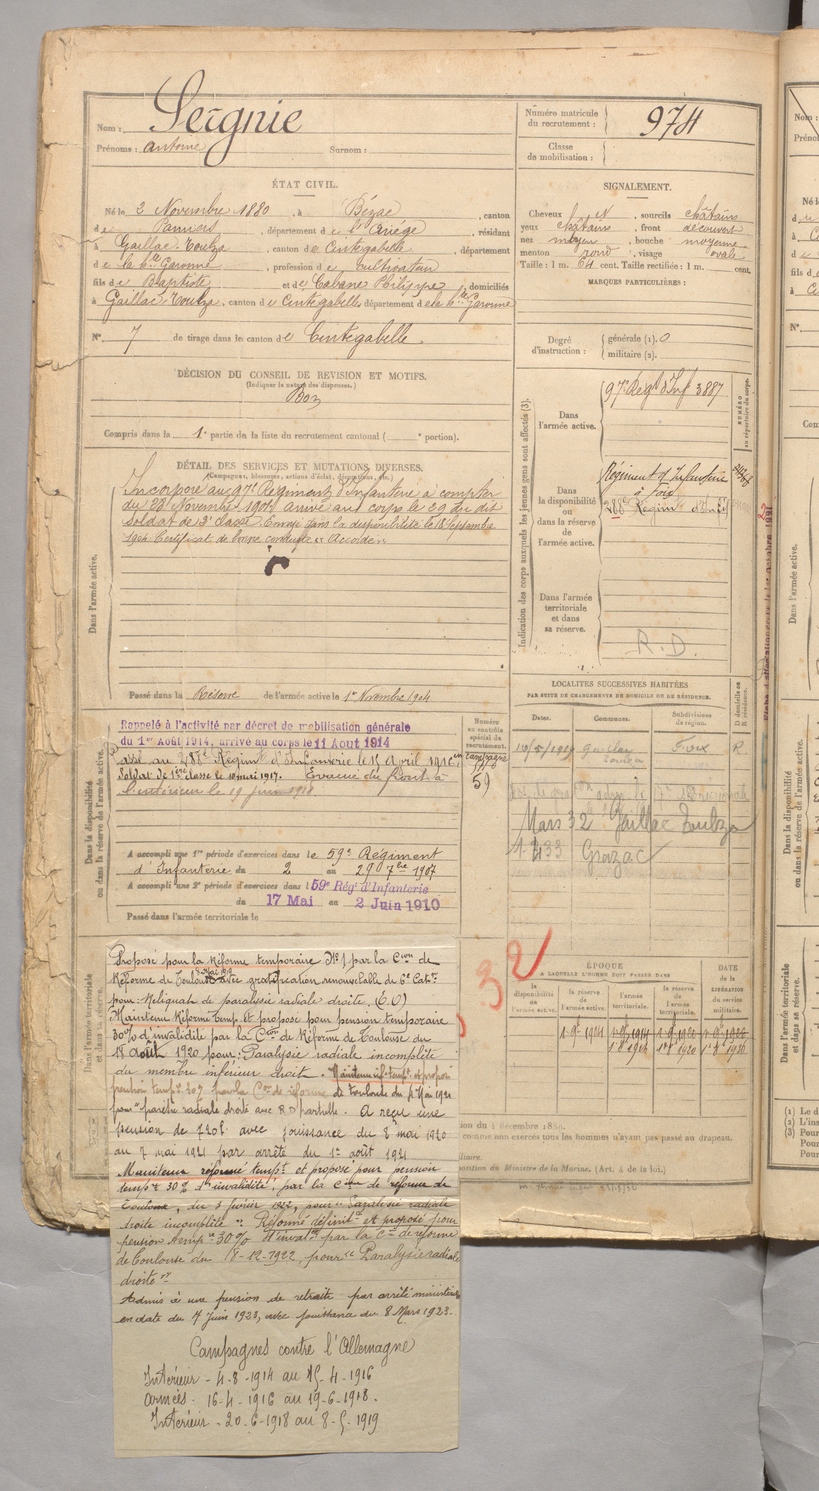 Nom : Sergnie
Prénoms : Antoine Surnom :
Numéro matricule du recrutement : 974
Classe de mobilisation :
ÉTAT CIVIL.
Né le 2 Novembre 1880, à Bézac, canton
de Pamiers, département de l'Ariège, résidant
à Gaillac-Toulza, canton de Cintegabelle, département
de la Hte Garonne, profession de cultivateur
fils de Baptiste et de Cabane Philippe, domiciliés
à Gaillac-Toulza, canton de Cintegabelle, département de la Hte Garonne
N° 7 de tirage dans le canton de Cintegabelle.
DÉCISION DU CONSEIL DE REVISION ET MOTIFS.
(Indiquer la nature des dispenses.)
Bon
Compris dans la 1e partie de la liste du recrutement cantonal ( e portion).
SIGNALEMENT.
Cheveux N, sourcils châtains
yeux châtains, front découvert
nez moyen, bouche moyenne
menton rond, visage ovale
Taille : 1 m. 64 cent. Taille rectifiée : 1 m. cent.
MARQUES PARTICULIÈRES :
Degré d'instruction : générale (1). 0
militaire (2).
DÉTAIL DES SERVICES ET MUTATIONS DIVERSES.
(Campagnes, blessures, actions d'éclat, décorations, etc.)
Dans l'armée active.
Incorporé au 97e Régiment d'Infanterie à compter
du 28 Novembre 1901 arrivé au corps le 29 du dit
soldat de 2e classe. Envoyé dans la disponibilité le 18 Septembre
1904. Certificat de bonne conduite "Accordé".
Passé dans la Réserve de l'armée active le 1er Novembre 1904
Indication des corps auxquels les jeunes gens sont affectés (3).
NUMÉRO au répertoire du corps.
Dans l'armée active. 97e Régt d'Inf 3887
Dans la disponibilité ou dans la réserve de l'armée active.
Régiment d'Infanterie
à Foix
288e Régim d'Inf
Dans l'armée territoriale et dans sa réserve.
R.D.
Dans la disponibilité ou dans la réserve de l'armée active.
Rappelé à l'activité par décret de mobilisation générale
du 1er Août 1914, arrivé au corps le 11 Aout 1914
Passé au 288e Régiment d'Infanterie le 15 Avril 1916
Soldat de 1ère classe le 10 mai 1917. Évacué du front à
l'intérieur le 19 juin 1918
Numéro au contrôle spécial du recrutement.
59
A accompli une 1re période d'exercices dans le 59e Régiment
d'Infanterie du 2 au 29 7bre 1907
A accompli une 2e période d'exercices dans le 59e Rég d'Infanterie
du 17 Mai au 2 Juin 1910
Passé dans l'armée territoriale le
LOCALITÉS SUCCESSIVES HABITÉES
PAR SUITE DE CHANGEMENTS DE DOMICILE OU DE RÉSIDENCE.
Dates. Communes. Subdivisions de région. D domicile ou R résidence.
Gaillac Toulza Foix R.
Mars 32 Gaillac Toulza
Grazac
32
ÉPOQUE
A LAQUELLE L'HOMME DOIT PASSER DANS
DATE de la LIBÉRATION du service militaire.
la disponibilité de l'armée active. la réserve de l'armée active. l'armée territoriale. la réserve de l'armée territoriale.
Proposé pour la Réforme temporaire N°1 par la Cion de
Réforme de Toulouse avec gratification renouvelable de 6e Catie
pour : Reliquat de paralysie radiale droite.
Maintenu Réformé Temp. et proposé pour pension temporaire
30% d'invalidité par la Cion de Réforme de Toulouse du
18 Août 1920 pour : Paralysie radiale incomplète
du membre inférieur droit. Maintenu réf tempre et proposé
pension tempre 20% par la Con de réforme de Toulouse du
pour "parésie radiale droite avec R D partielle. A reçu une
pension de 720f avec jouissance du 8 mai 1920
au 7 mai 1921 par arrêté du 1er août 1921
Maintenu réformé tempt et proposé pour pension
tempre 30% d'invalidité, par la Cion de réforme de
Toulouse, du 3 février 1922, pour "Paralysie radiale
droite incomplète". Réformé définitt et proposé pour
pension temp 30% d'invalté par la Con de réforme
de Toulouse du 18-12-1922, pour "Paralysie radiale
droite"
Admis à une pension de retraite par arrêté ministériel
en date du 7 Juin 1923, avec jouissance du 8 Mars 1923.
Campagnes contre l'Allemagne
Intérieur - 4-8-1914 au 15-4-1916
Armées - 16-4-1916 au 19-6-1918.
Intérieur - 20-6-1918 au 8-5-1919